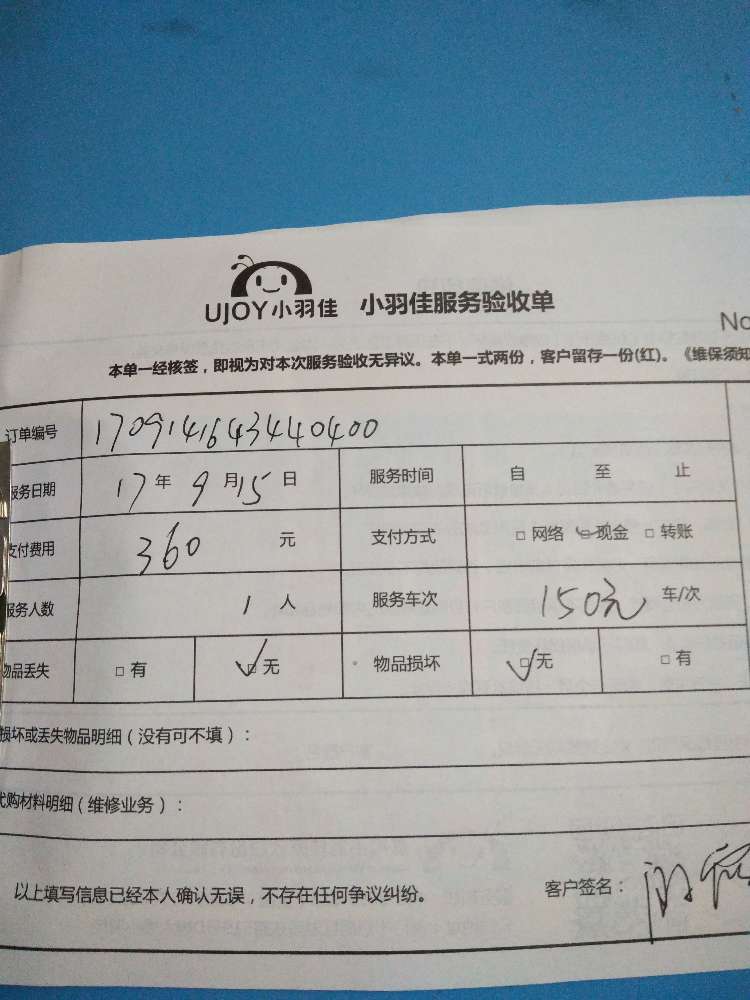 UJOY小羽佳 小羽佳服务验收单
No
本单一经核签，即视为对本次服务验收无异议。本单一式两份，客户留存一份(红)。《维保须知
订单编号 1709141643440400
服务日期 17 年 9 月 15 日 服务时间 自 至 止
支付费用 360 元 支付方式 □ 网络 □ 现金 □ 转账
服务人数 1 人 服务车次 150元 车/次
物品丢失 □ 有 □ 无 物品损坏 □ 无 □ 有
损坏或丢失物品明细（没有可不填）：
代购材料明细（维修业务）：
以上填写信息已经本人确认无误，不存在任何争议纠纷。 客户签名：